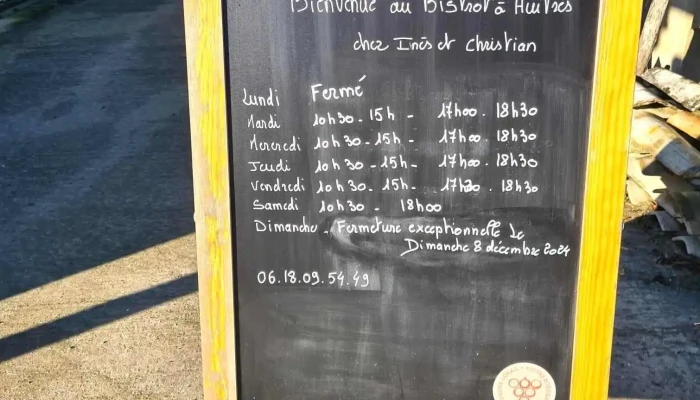 Bienvenue au Bistrot à Huîtres
chez Inès et Christian
Lundi Fermé
Mardi 10h30-15h - 17h00.18h30
Mercredi 10h30-15h- 17h00.18h30
Jeudi 10h30-15h- 17h00.18h30
Vendredi 10h30-15h- 17h30.18h30
Samedi 10h30- 18h00
Dimanche - Fermeture exceptionnelle Le
Dimanche 8 décembre 2024
06.18.09.54.49